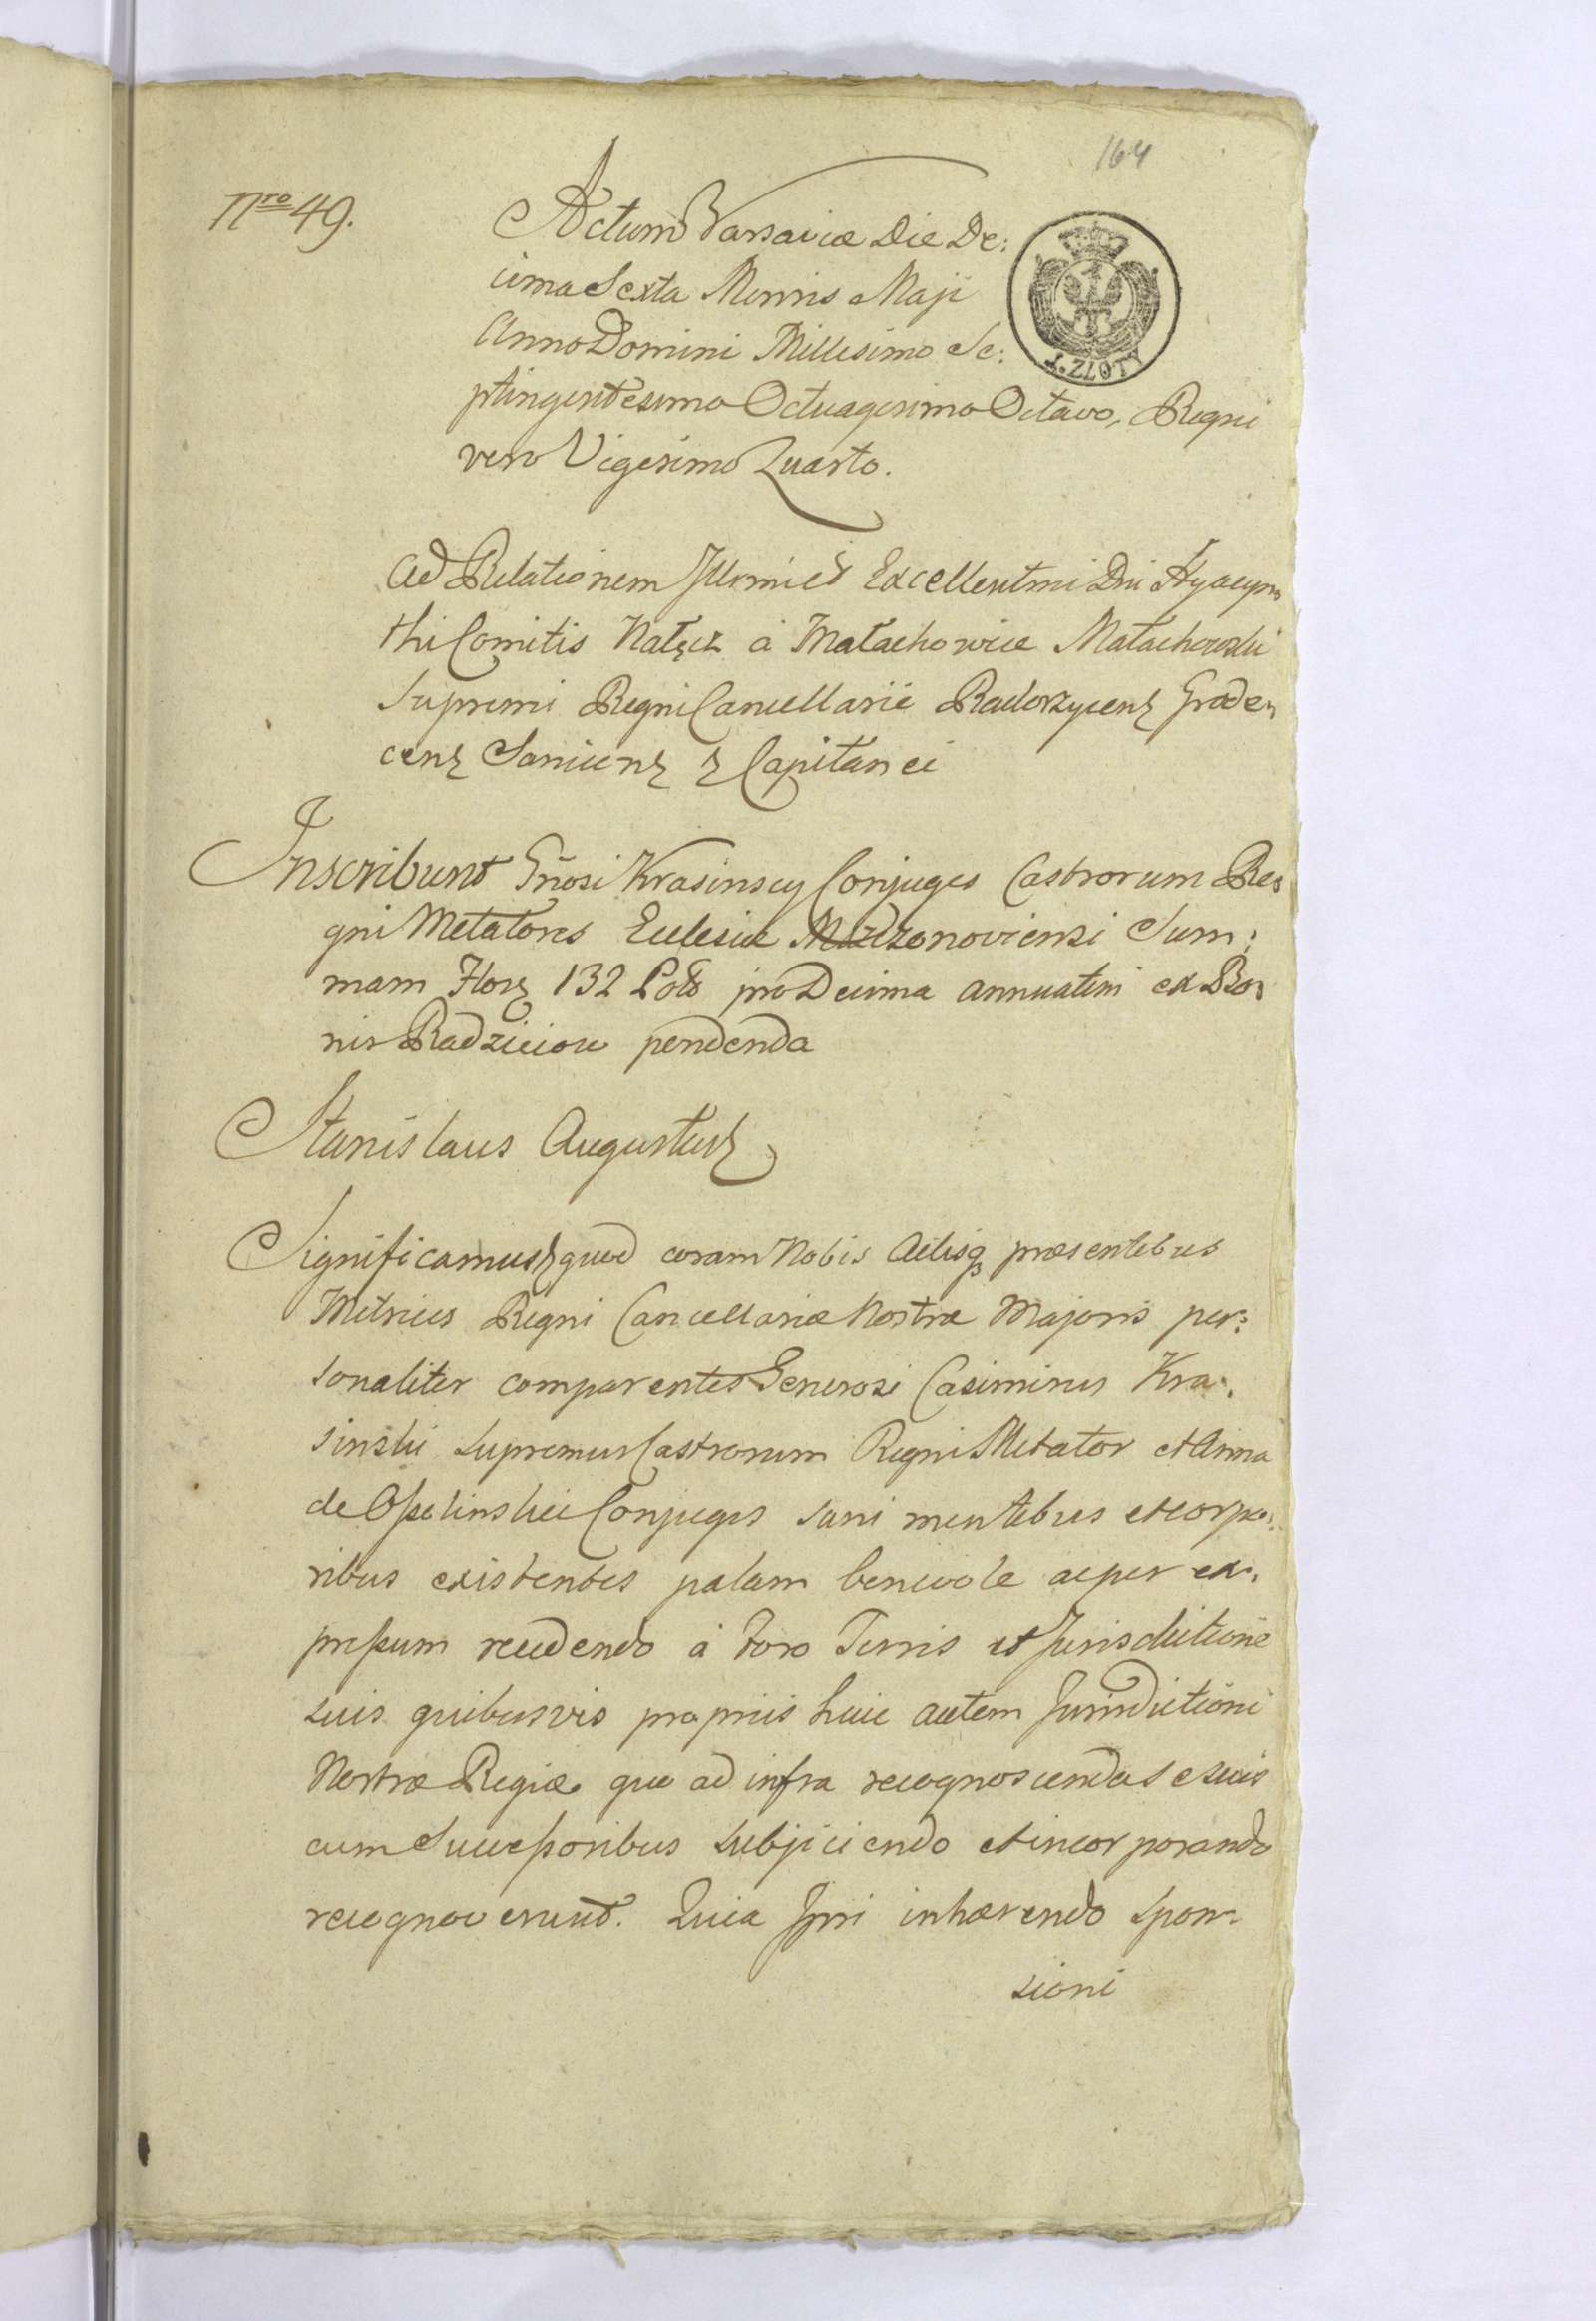 164
Nro 49.
Actum Varsaviæ Die De:
cima Sexta Mensis Maji
Anno Domini Millesimo Se:
ptingentesimo Octuagesimo Octavo, Regni
vero Vigesimo Quarto.
1. ZŁOTY
Ad Relationem Illrmi et Excellentmi Dni Hyacyn
thi Comitis Nałęcz à Małachowice Małachowski
Supremi Regni Cancellarii Radoszycens Grode
cens &c Capitanei
Inscribunt Gnosi Krasinscy Conjuges Castrorum Re
gni Metatores Eclesiæ Mszczonoviensi Sum:
mam Flor 132 Pol pro Decima annuatim ex Bo
nis Radzieiow pendenda
Stanislaus Augustus
Significamus quod coram Nobis Actisq præsentibus
Metrices Regni Cancellariæ Nostræ Majoris per:
sonaliter comparentes Generosi Casimirus Kra:
sinski Supremus Castrorum Regni Metator et Anna
de Ossolinskie Conjuges sani mentibus et corpo:
ribus existentes palam benevole ac per ex:
pressum recedendo à Foro Terris et Jurisdictione
suis quibusvis propriis huic autem Jurisdictioni
Nostræ Regiæ quo ad infra recognoscenda se suis
cum Successoribus subjiciendo et incorporando
recognoverunt. Quia Ipsi inhærendo Spon:
sioni